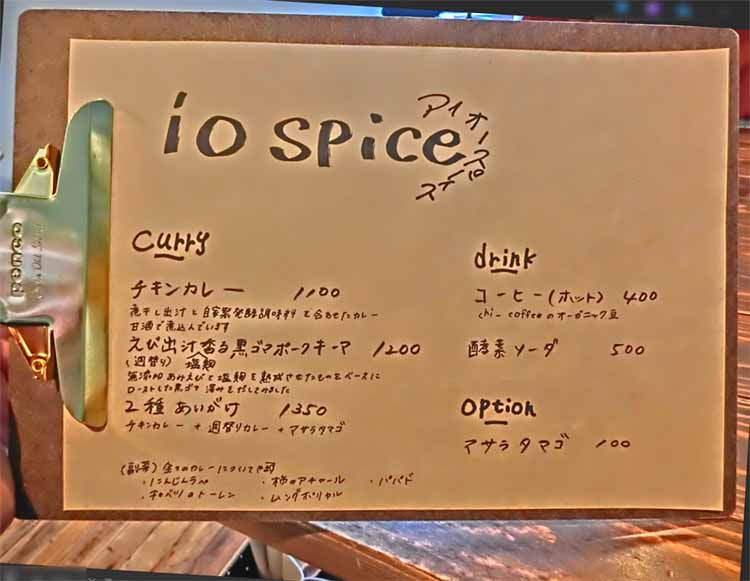 io spice
アイオースパイス
curry
チキンカレー 1100
煮干し出汁と自家製発酵調味料を合わせたカレー
甘酒で煮込んでいます
えび出汁香る黒ゴマポークキーマ 1200
(週替り) 塩麹
無添加あみえびと塩麹を熟成させたものをベースに
ローストした黒ゴマで深みをだしてみました
2種あいがけ 1350
チキンカレー + 週替りカレー + マサラタマゴ
(副菜) 全てのカレーについてき〼
・にんじんラペ ・柿のアチャール ・パパド
・キャベツのトーレン ・ムングボリヤル
drink
コーヒー(ホット) 400
chi-coffeeのオーガニック豆
酵素ソーダ 500
option
マサラタマゴ 100
penco